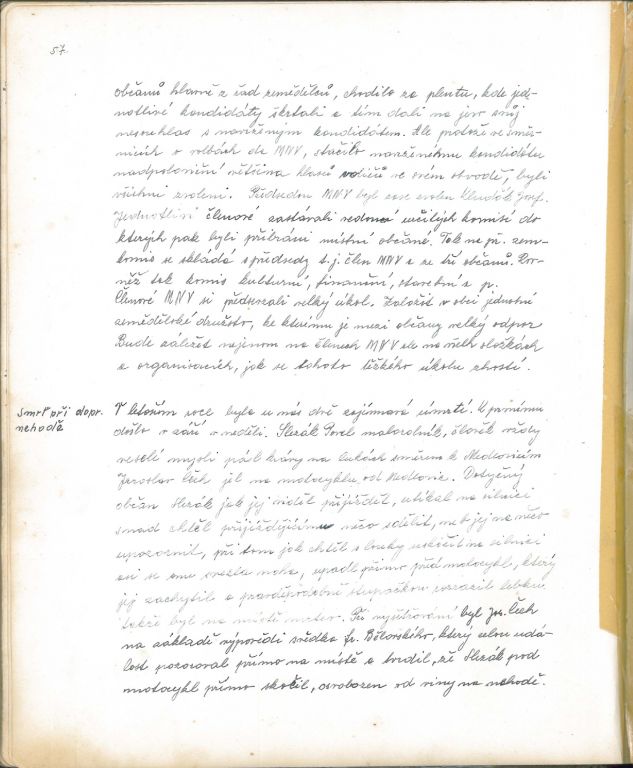 57.
občanů hlavně z řad zemědělců, chodilo za plentu, kde jed-
notlivé kandidáty škrtali a tím dali na jevo svůj
nesouhlas s navrženým kandidátem. Ale protože ve směr-
nicích o volbách do MNV, stačilo navrženému kandidátu
nadpoloviční většina hlasů voličů ve svém obvodě, byli
všichni zvoleni. Předsedou MNV byl zase zvolen Josef.
Jednotliví členové zastávali vedoucí určitých komisí do
kterých pak byli přibráni místní občané. Tak na př. zem-
komise se skládá s předsedy t.j. člen MNV a ze tří občanů. Rov-
něž tak komise kulturní, finanční, stavební a p.
Členové MNV si předsevzali velký úkol. Založit v obci jednotné
zemědělské družstvo, ke kterému je mezi občany velký odpor
Bude záležet nejenom na členech MNV ale na všech složkách
a organisacích, jak se tohoto těžkého úkolu zhostí.
Smrť při dopr.
nehodě
V letošním roce byla u nás dvě zajímavá úmrtí. K prvnímu
došlo v září v neděli. Slezák Pavel malorolník, člověk vždy
veselé mysli pásl krávy na lukách směrem k Medlovicím
Jaroslav Čech jel na motocyklu od Medlovic. Dotyčný
občan Slezák jak jej viděl přijíždět, utíkal na silnici
snad chtěl přijíždějícímu něco sdělit, neb jej na něco
upozornit, při tom jak chtěl s louky uskočit na silnici
asi se mu svezla noha, upadl přímo před motocykl, který
jej zachytil a pravděpodobně stupačkou prorazil lebku
takže byl na místě mrtev. Při vyšetřování byl Jar. Čech
na základě výpovědi svědka fr. Bělovského, který celou udá-
lost pozoroval přímo na místě a tvrdil, že Slezák pod
motocykl přímo skočil, osvobozen od viny na nehodě.